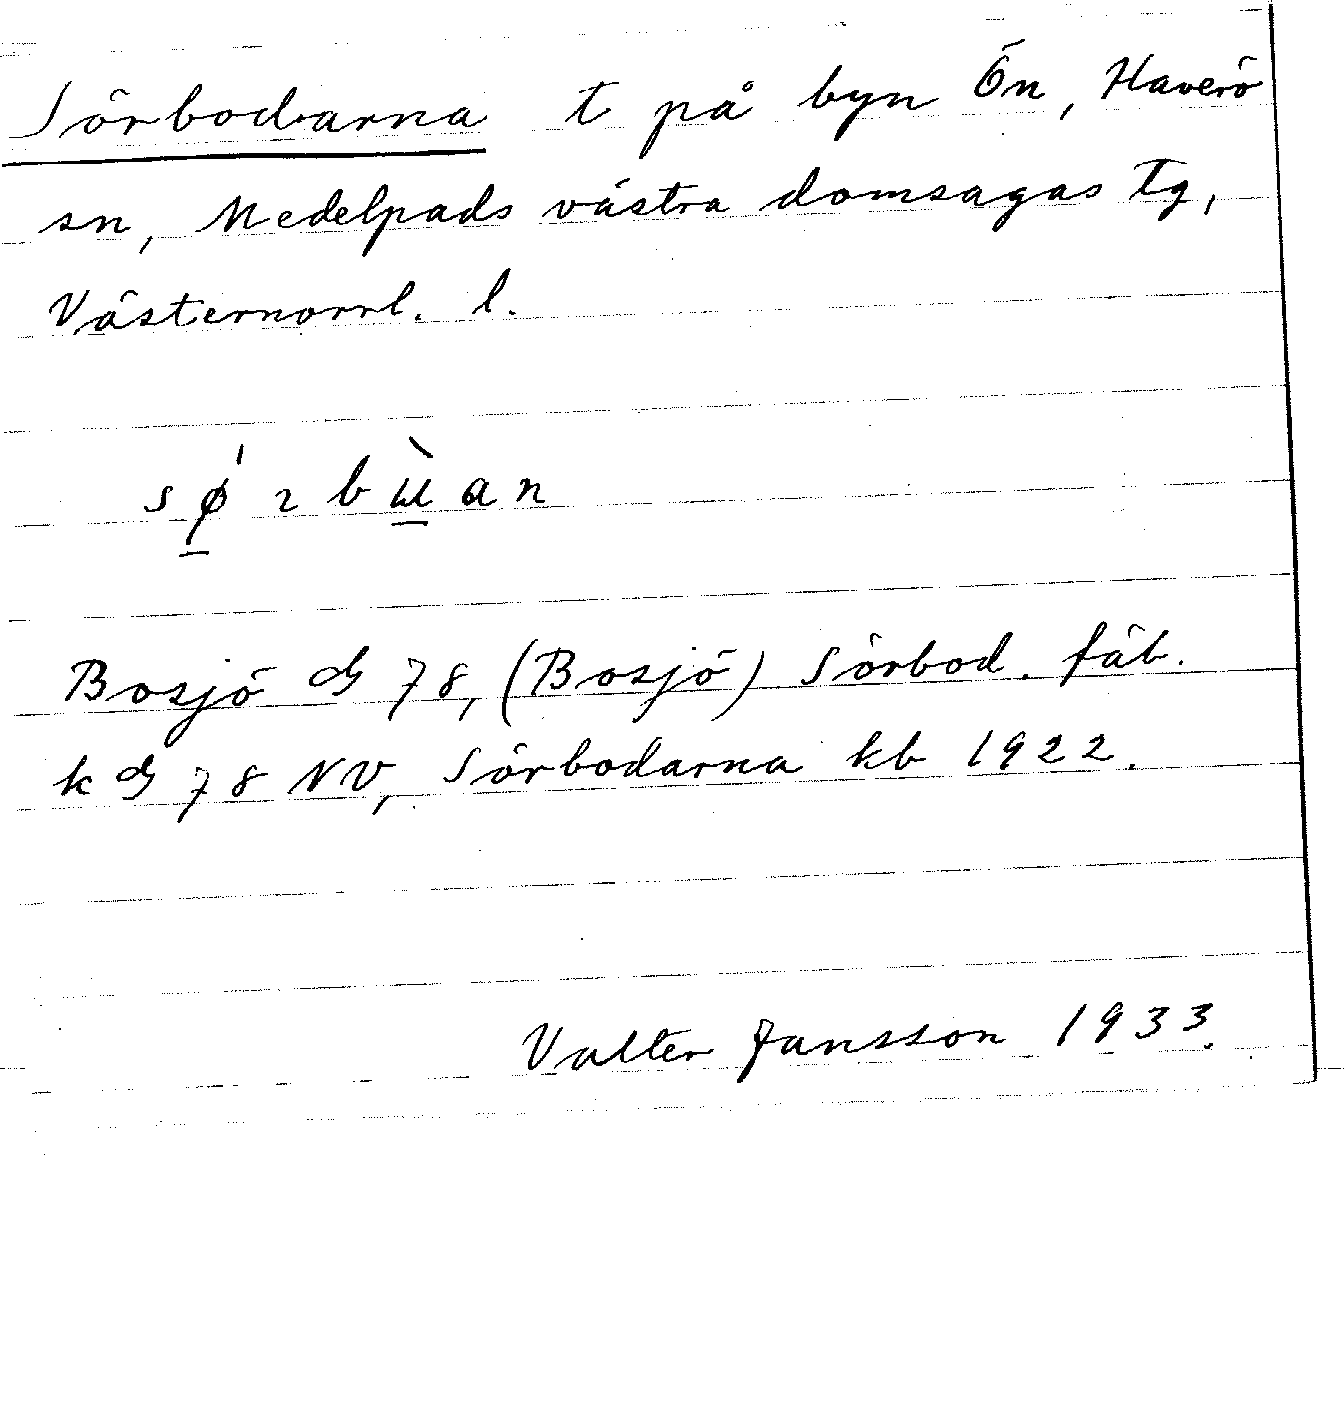 Sörbodarna t på byn Ön, Haverö
sn, Medelpads västra domsagas tg,
Västernorrl. l.
sǿ̱rbɯ̱̀an
Bosjö GS 78, (Bosjö) Sörbod. fäb.
k GS 78 NV, Sörbodarna kb 1922.
Valter Jansson 1933.